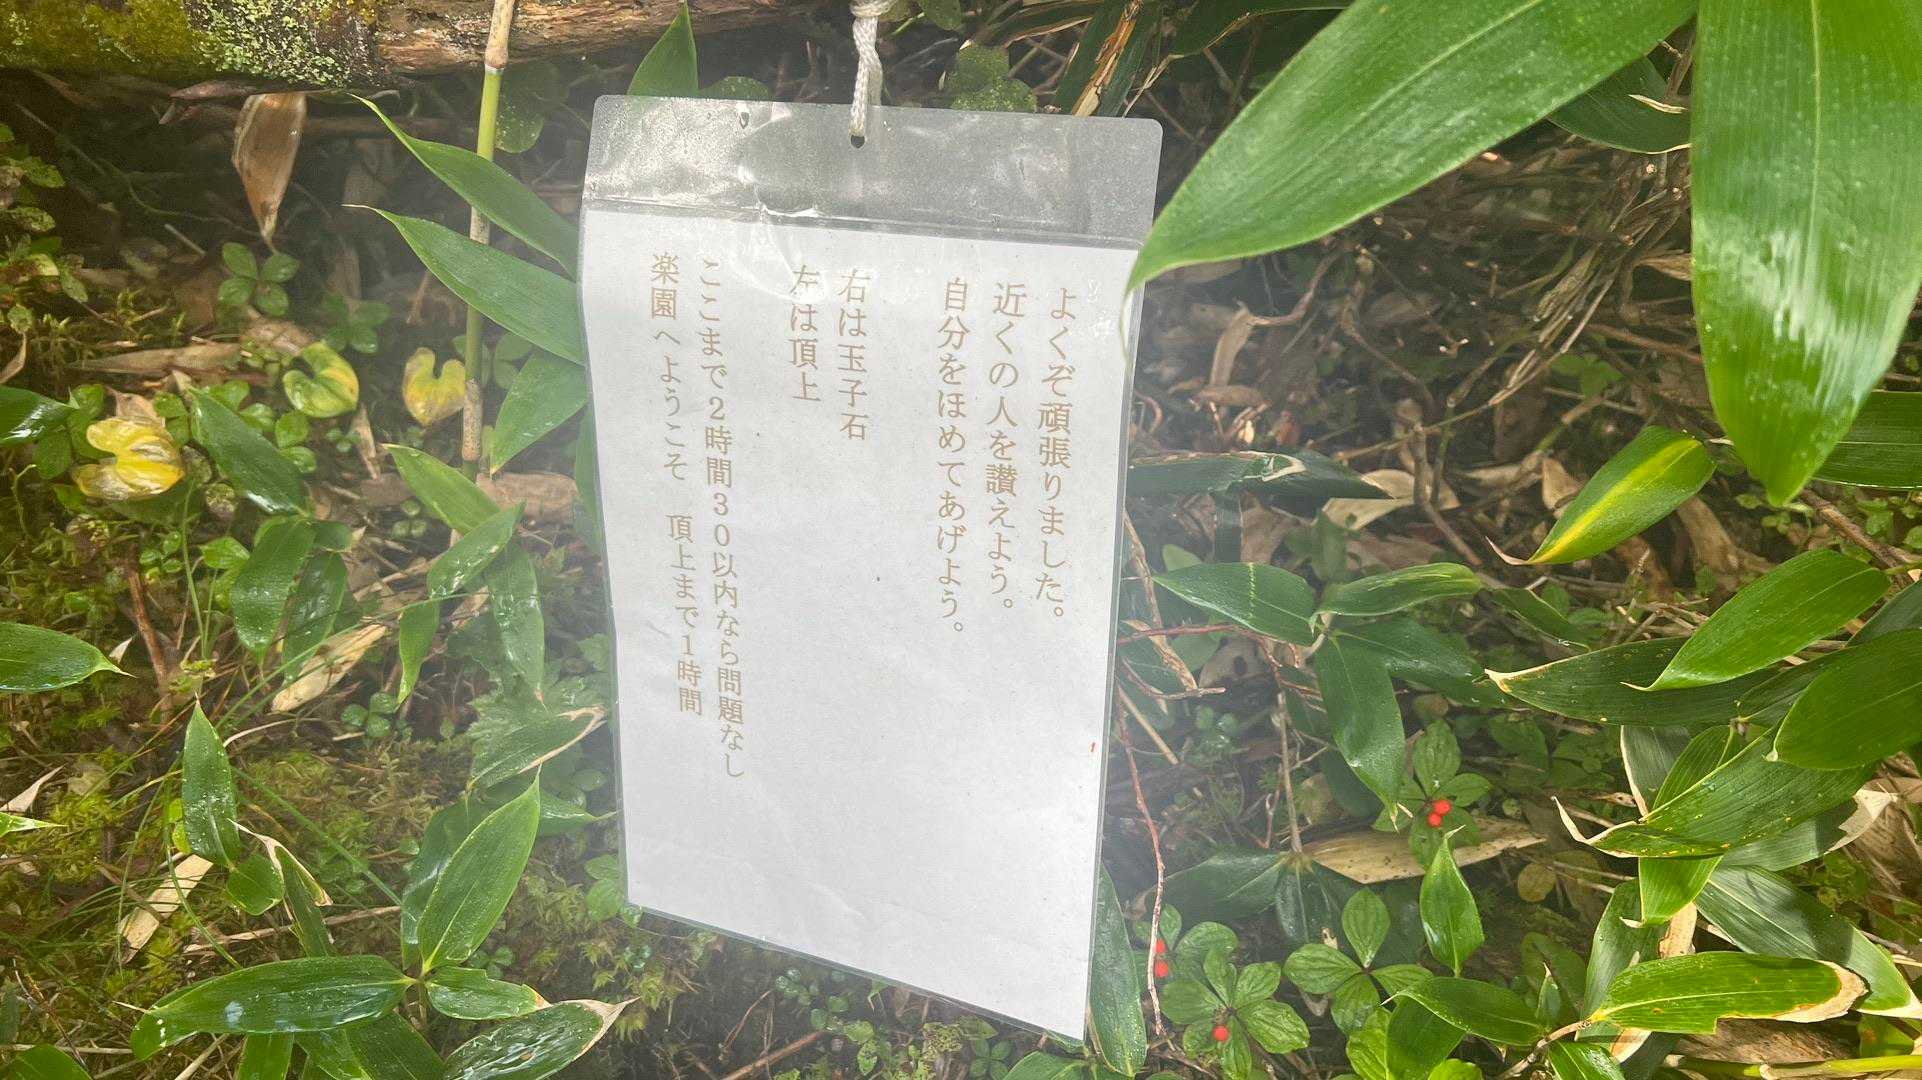 よくぞ頑張りました。
近くの人を讃えよう。
自分をほめてあげよう。
右は玉子石
左は頂上
ここまで2時間30以内なら問題なし
楽園へようこそ　頂上まで1時間